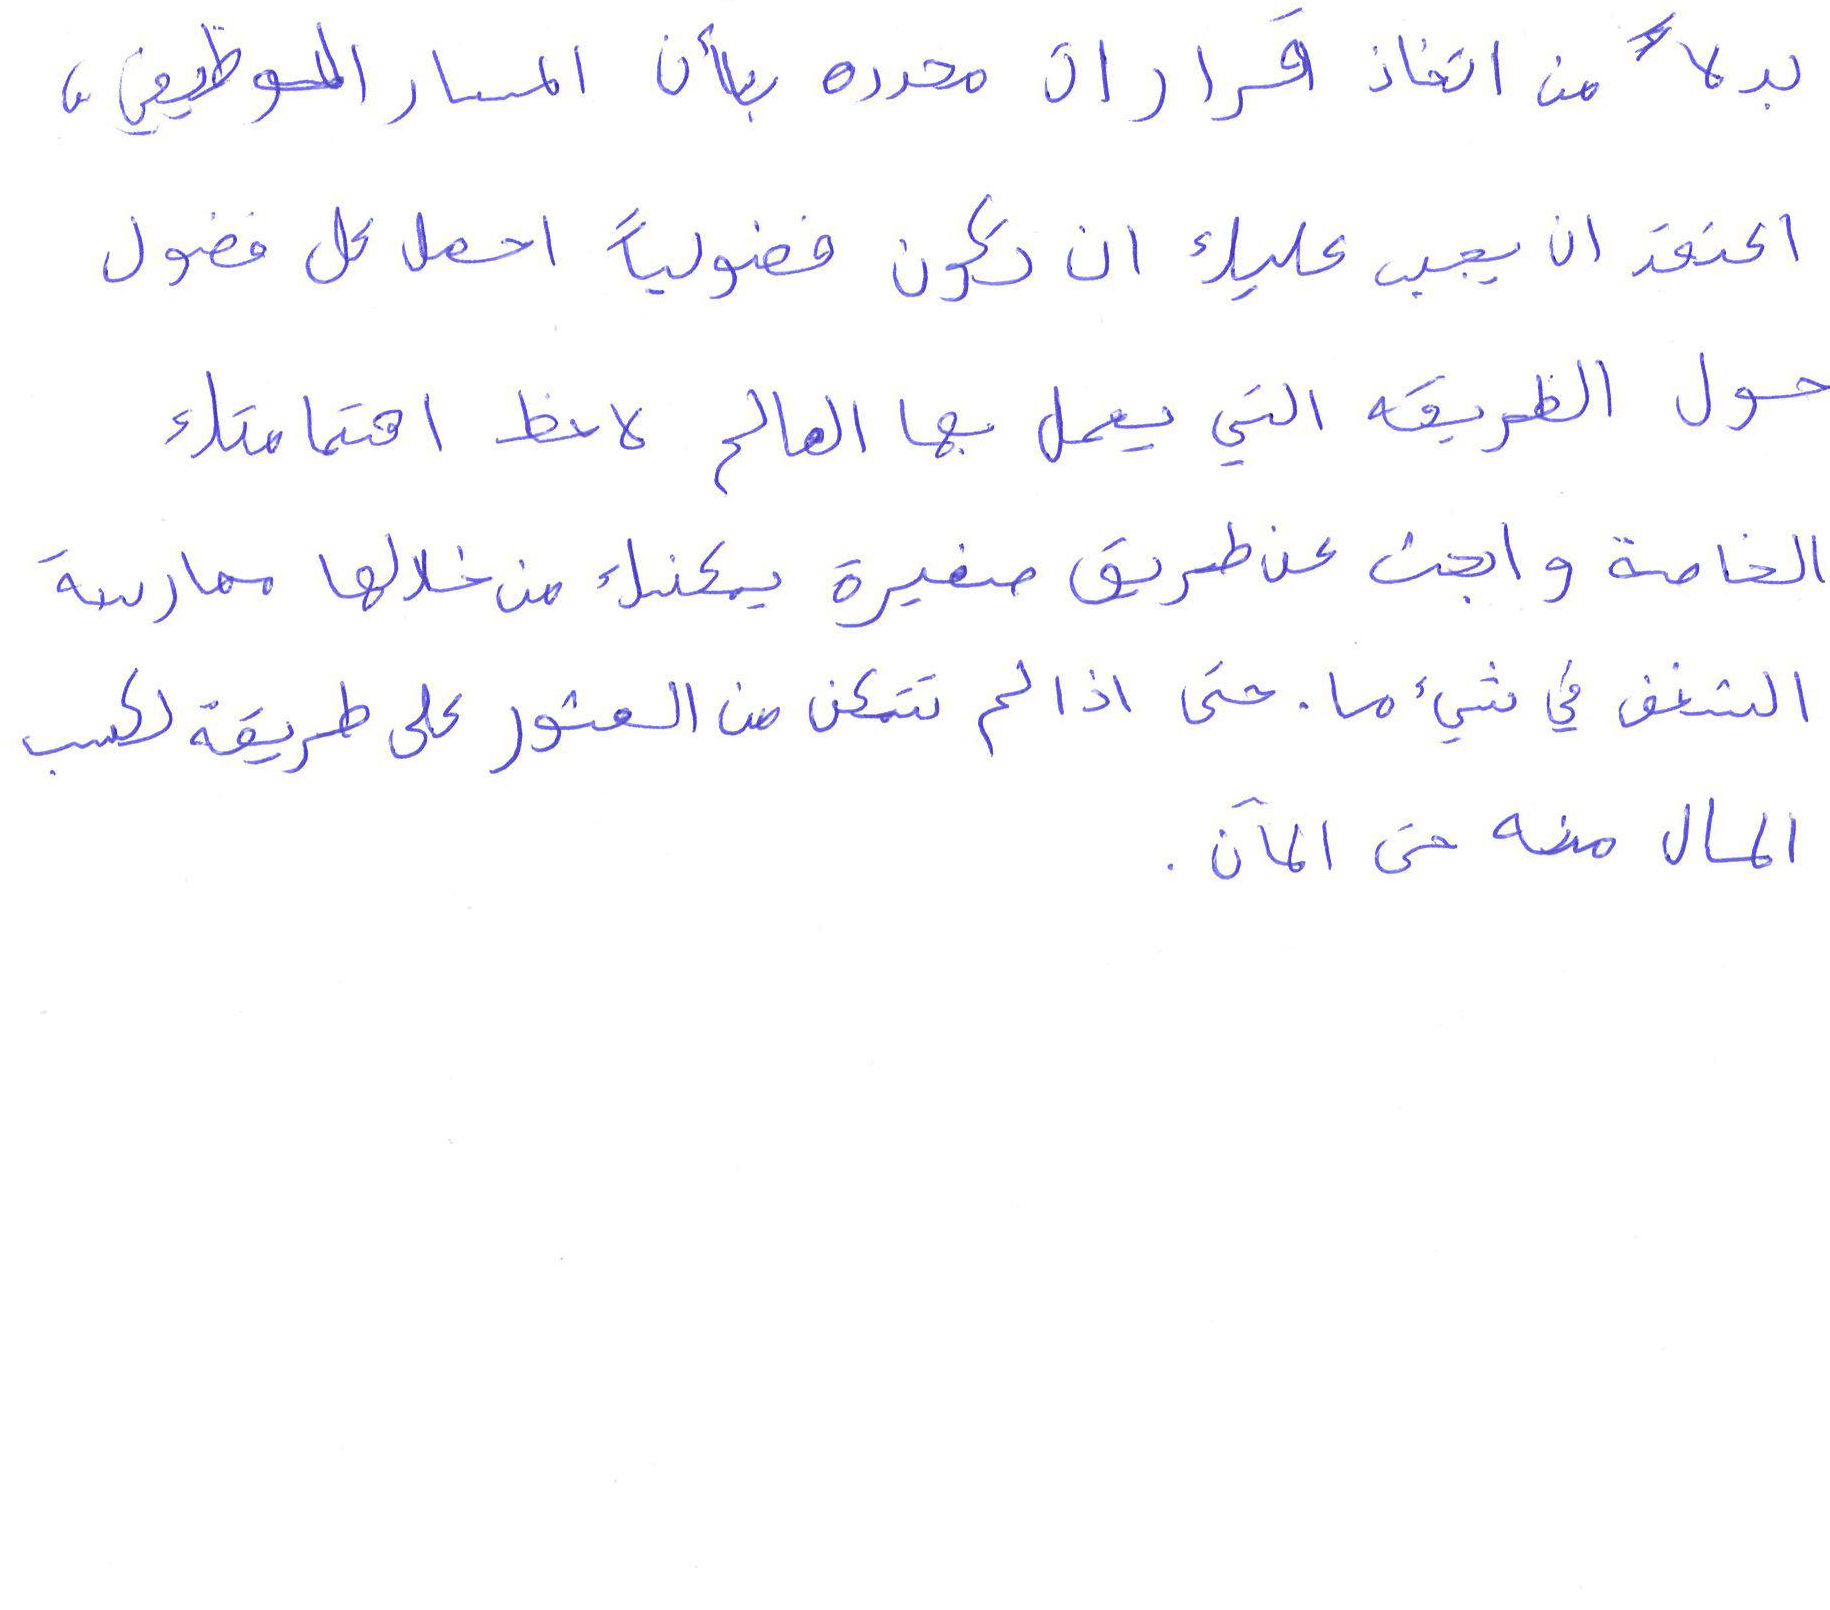 بدلاً من اتخاذ قرارات محدده بأن المسار الوظيفي،
اعتقد ان يجب عليك ان تكون فضولياً احمل كل فضول
حول الطريقه التي يعمل بها العالم لاحظ اهتمامتك
الخاصة وابحث عن طريق صغيرة يمكنك من خلالها ممارسة
الشغف في شيء ما. حتى اذا لم تتمكن من العثور على طريقة لكسب
المال منه حتى الآن.